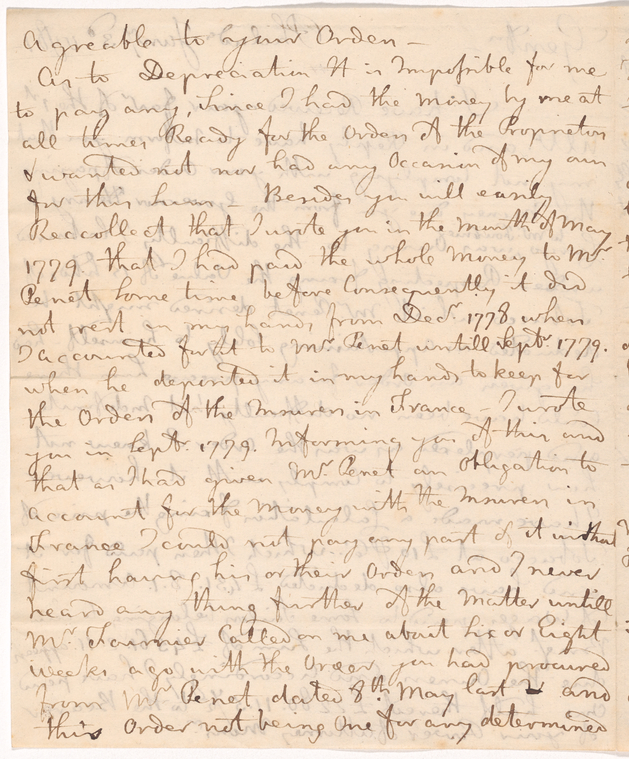 Agreable to your Orders —
As to Depreciation It is Impossible for me
to pay any, Since I had the Money by me at
all times Ready for the Orders of the Proprietors
& wanted not nor had any Occasion of my own
for this Sum — Besides you will easily
Reccollect that I wrote you in the month of May
1779 that I had paid the whole Money to Mr.
Penet Some time before Consequently it did
not rest in my hands from Decr. 1778 when
I accounted for it to Mr. Penet untill Septr. 1779.
when he deposited it in my hands to keep for
the Orders of the Insurers in France — I wrote
you in Septr. 1779. Informing you of this and
that as I had given Mr. Penet an Obligation to
account for the Money with the Insurers in
France I could not pay any part of it without
first having his or their Orders and I never
heard any thing further of the Matter untill
Mr. Fournier Called on me about Six or Eight
weeks ago with the Order you had procured
from Mr. Penet dated 8th May last and
this Order not being One for any determined